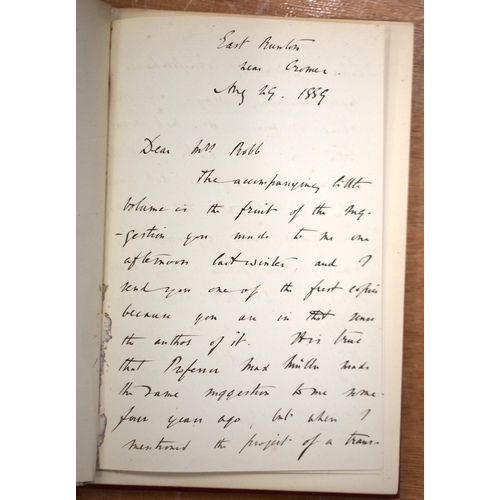 East Runton
near Cromer.
Aug 29. 1889
Dear Mrs Robb
The accompanying little
volume is the fruit of the sug-
-gestion you made to me one
afternoon last winter, and I
send you one of the first copies
because you are in that sense
the author of it. It is true
that Professor Max Müller made
the same suggestion to me some
four years ago, but when I
mentioned the project of a trans-